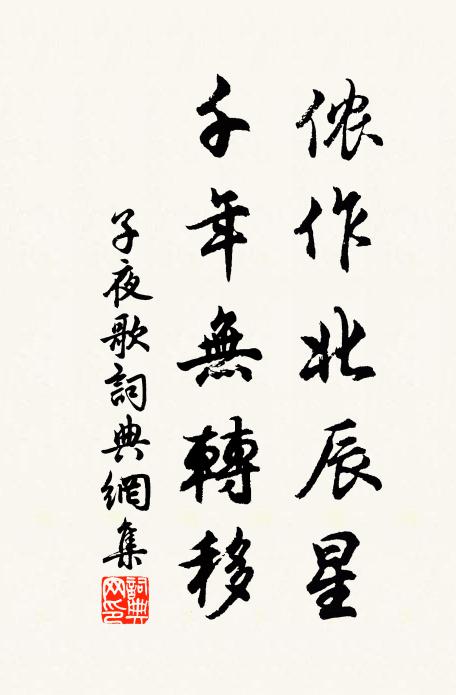 侬作北辰星
千年無轉移
子夜歌詞典網集
詞典网印